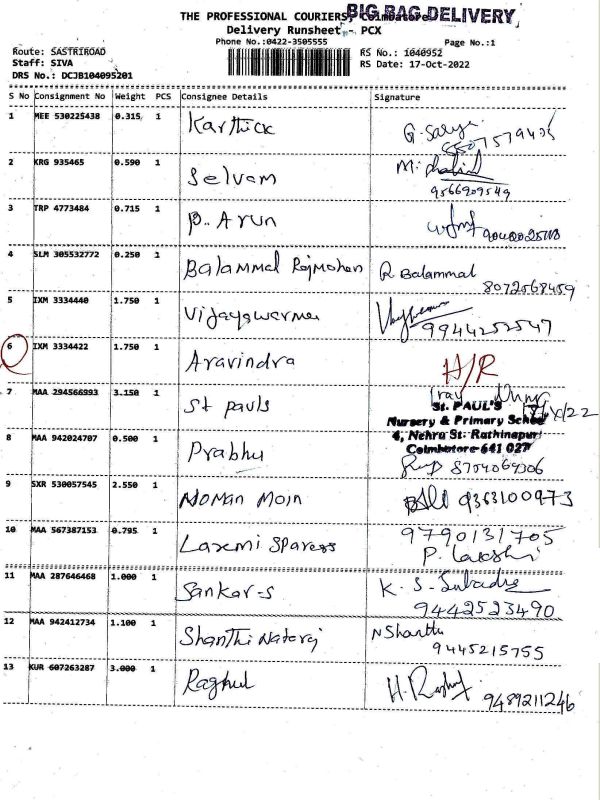 BIG BAG DELIVERY
THE PROFESSIONAL COURIERS, Coimbatore
Delivery Runsheet - PCX
Phone No.:0422-3505555
Page No.:1
Route: SASTRIROAD
Staff: SIVA
DRS No.: DCJB104095201
RS No.: 1040952
RS Date: 17-Oct-2022
S No Consignment No Weight PCS Consignee Details Signature
1 MEE 530225438 0.315 1 Karthick
2 KRG 935465 0.590 1 Selvam
9566909549
3 TRP 4773484 0.715 1 P. Arun
4 SLM 305532772 0.250 1 Balammal Rajmohan R Balammal
8072568459
5 IXM 3334440 1.750 1 Vijayawarma
9944252547
6 IXM 3334422 1.750 1 Aravindra H/R
7 MAA 294566993 3.150 1 St pauls
St. PAUL'S
Nursery & Primary School
4, Nehru St. Rathinapuri
Coimbatore-641 027
8 MAA 942024707 0.500 1 Prabhu
9 SXR 530057545 2.550 1 NOMAN MOIN 9363100973
10 MAA 567387153 0.795 1 Laxmi Sparess 9790131705
P. Lakshi
11 MAA 287646468 1.000 1 Sankar-s K. S.
9442523490
12 MAA 942412734 1.100 1 Shanthi Nataraj N Shanthi
9445215755
13 KUR 607263287 3.000 1 Raghul H.
9489211246